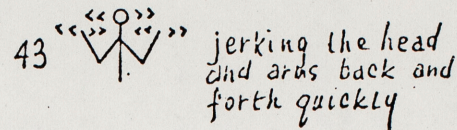 43 jerking the head
and arms back and
forth quickly